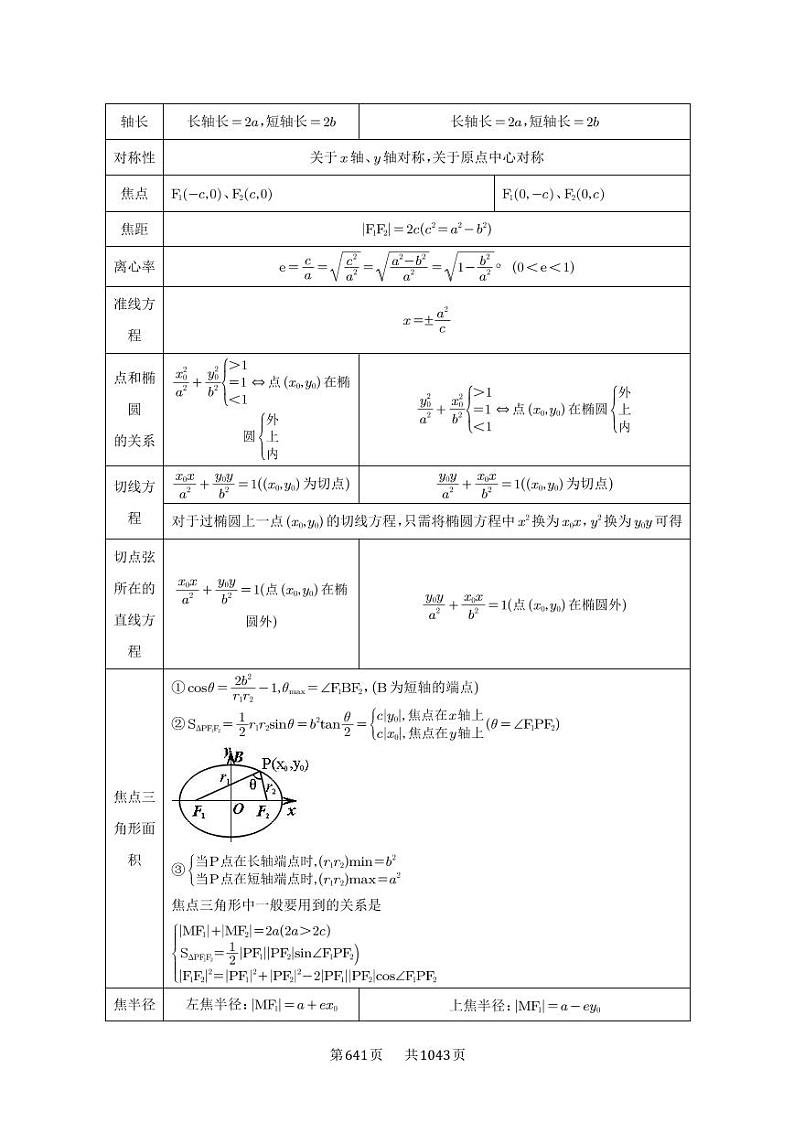 轴长 长轴长=2a,短轴长=2b 长轴长=2a,短轴长=2b
对称性 关于x轴、y轴对称,关于原点中心对称
焦点 F₁(−c,0)、F₂(c,0) F₁(0,−c)、F₂(0,c)
焦距 |F₁F₂|=2c(c²=a²−b²)
离心率 e=c/a=√(c²/a²)=√((a²−b²)/a²)=√(1−b²/a²)。(0<e<1)
准线方
程
x=±a²/c
点和椭
圆
的关系
x₀²/a²+y₀²/b²{>1 =1 <1 ⇔点(x₀,y₀)在椭
圆{外 上 内
y₀²/a²+x₀²/b²{>1 =1 <1 ⇔点(x₀,y₀)在椭圆{外 上 内
切线方
程
x₀x/a²+y₀y/b²=1((x₀,y₀)为切点) y₀y/a²+x₀x/b²=1((x₀,y₀)为切点)
对于过椭圆上一点(x₀,y₀)的切线方程,只需将椭圆方程中x²换为x₀x,y²换为y₀y可得
切点弦
所在的
直线方
程
x₀x/a²+y₀y/b²=1(点(x₀,y₀)在椭
圆外)
y₀y/a²+x₀x/b²=1(点(x₀,y₀)在椭圆外)
焦点三
角形面
积
①cosθ=2b²/(r₁r₂)−1,θmax=∠F₁BF₂,(B为短轴的端点)
②S△PF₁F₂=1/2 r₁r₂sinθ=b²tan θ/2={c|y₀|,焦点在x轴上 c|x₀|,焦点在y轴上(θ=∠F₁PF₂)
y B P(x₀,y₀)
r₁ θ r₂
F₁ O F₂ x
③{当P点在长轴端点时,(r₁r₂)min=b²
当P点在短轴端点时,(r₁r₂)max=a²
焦点三角形中一般要用到的关系是
{|MF₁|+|MF₂|=2a(2a>2c)
S△PF₁F₂=1/2|PF₁||PF₂|sin∠F₁PF₂)
|F₁F₂|²=|PF₁|²+|PF₂|²−2|PF₁||PF₂|cos∠F₁PF₂
焦半径 左焦半径:|MF₁|=a+ex₀ 上焦半径:|MF₁|=a−ey₀
第641页 共1043页